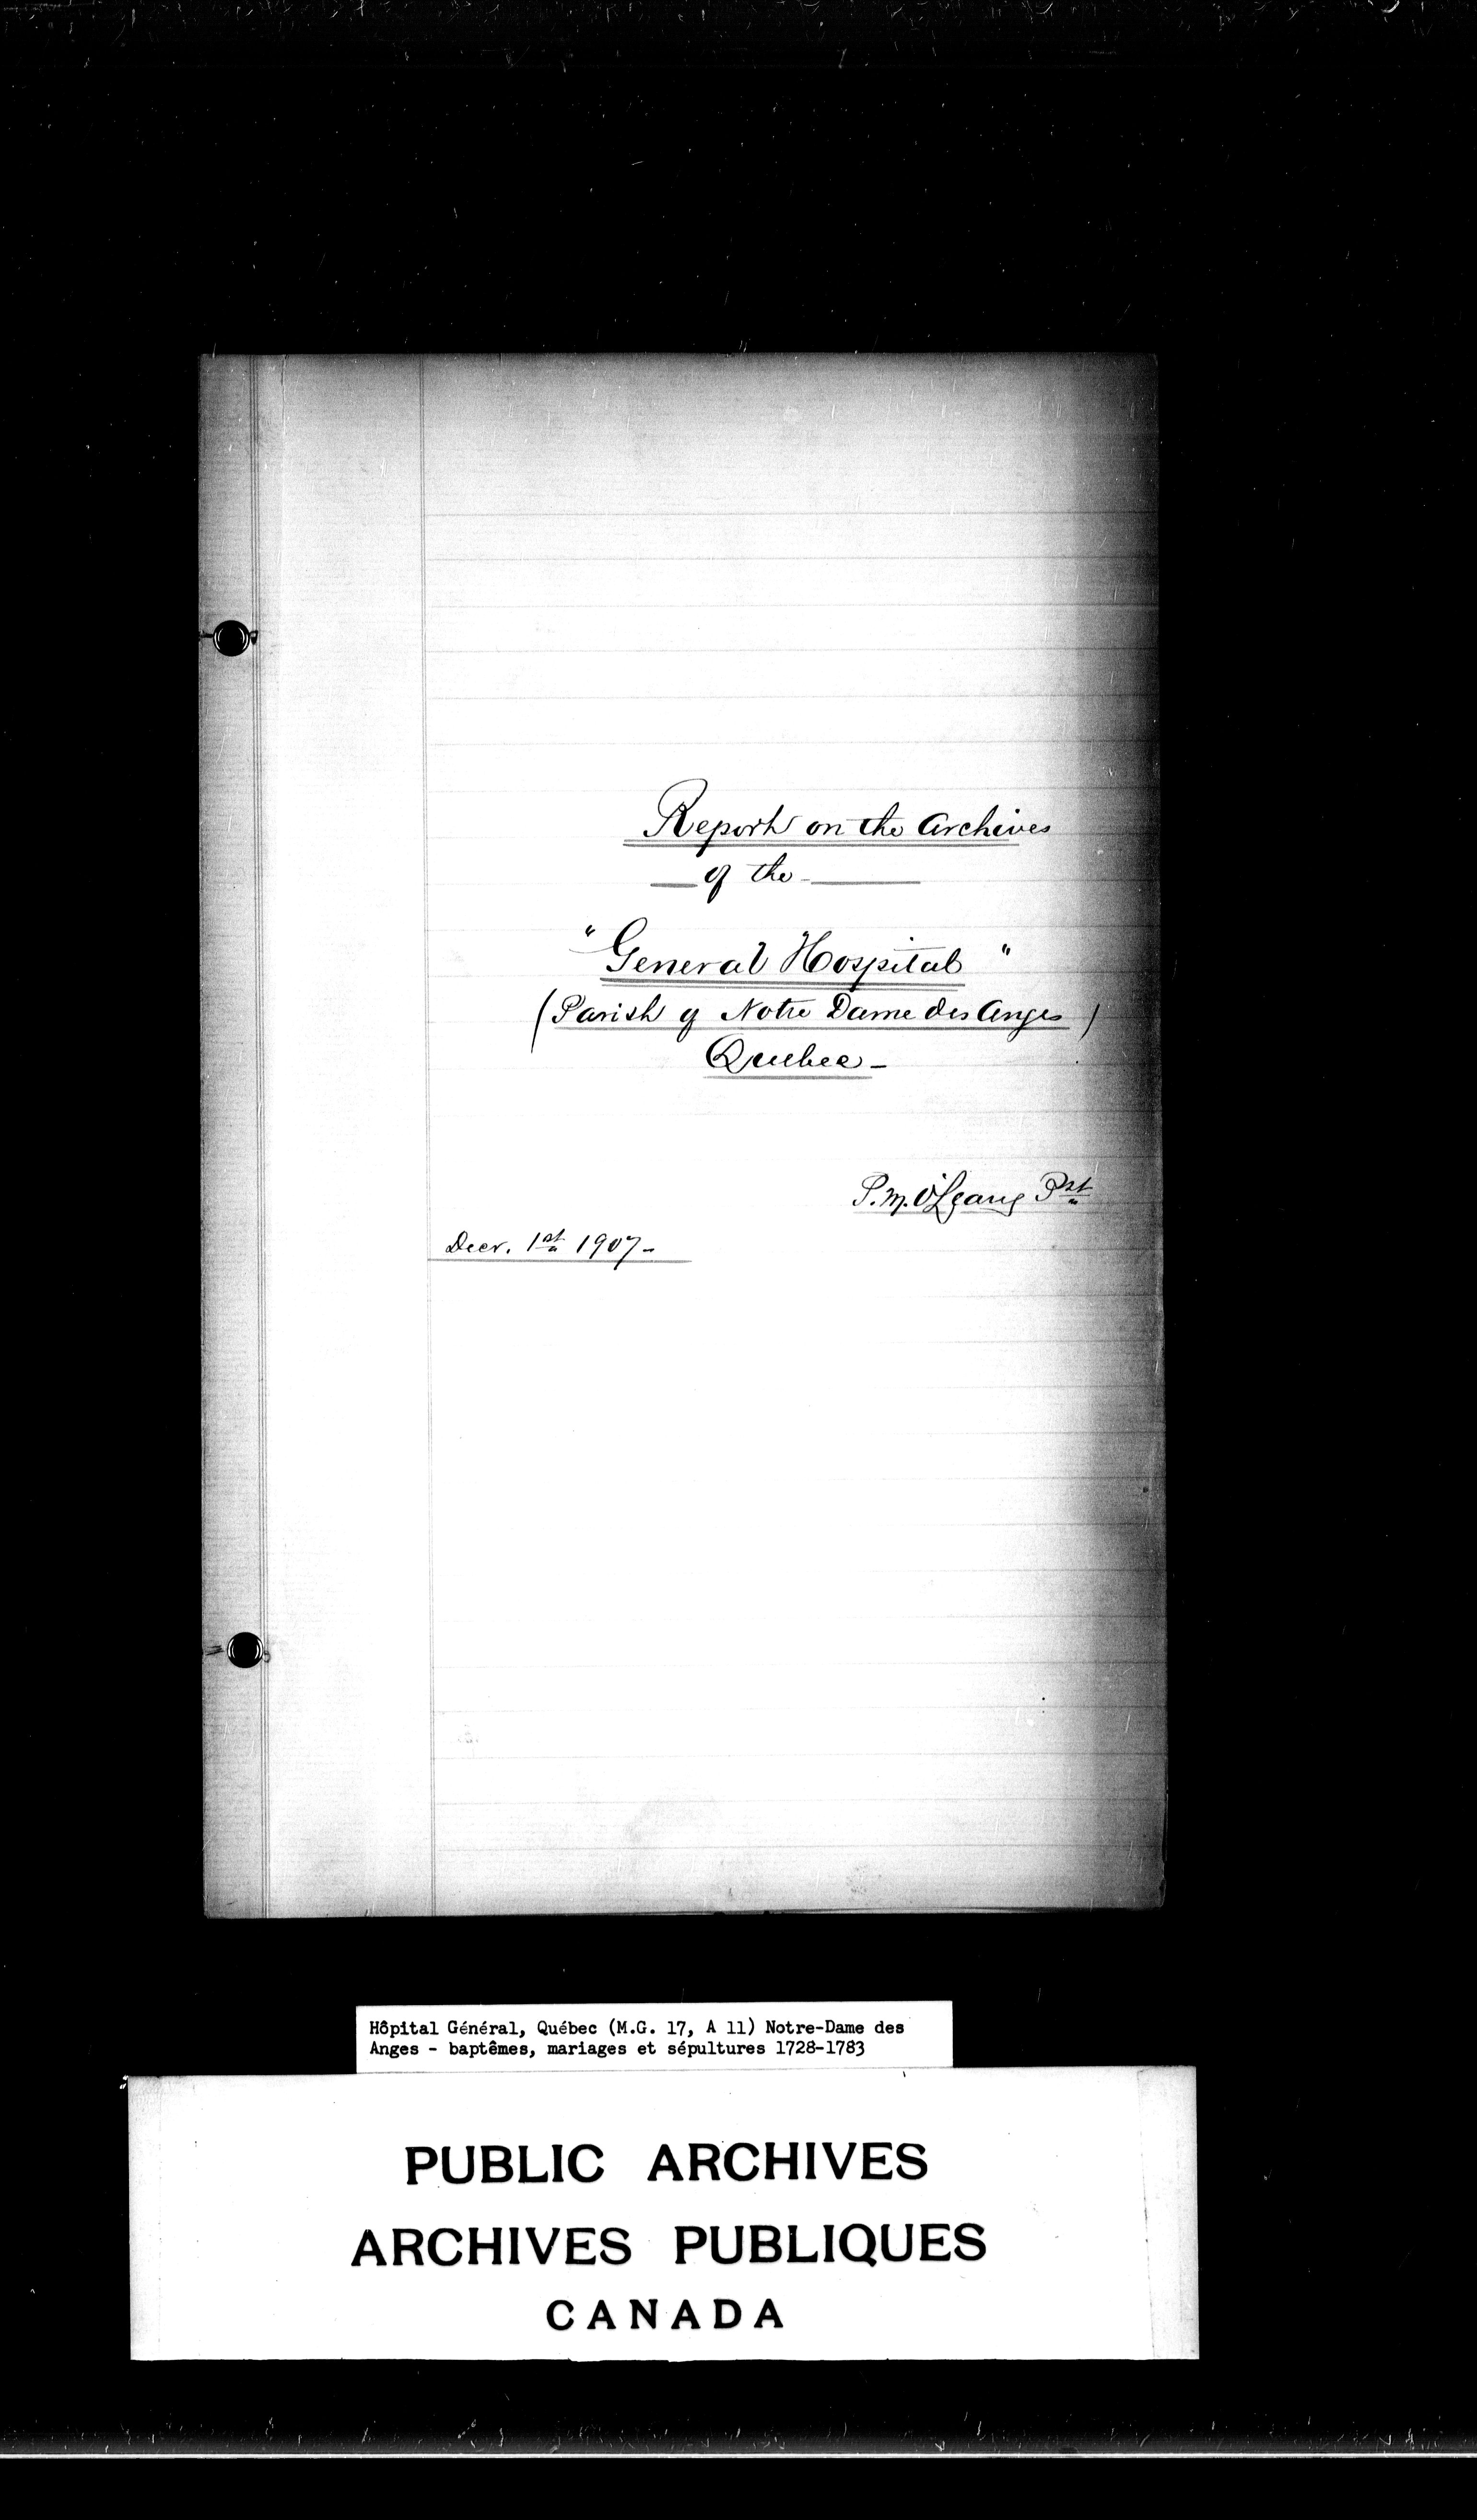 Report on the Archives
of the
"General Hospital"
(Parish of Notre Dame des Anges)
Quebec -
P. M. O'Leary Pst
Decr. 1st 1907 -
Hôpital Général, Québec (M.G. 17, A 11) Notre-Dame des
Anges - baptêmes, mariages et sépultures 1728-1783
PUBLIC ARCHIVES
ARCHIVES PUBLIQUES
CANADA